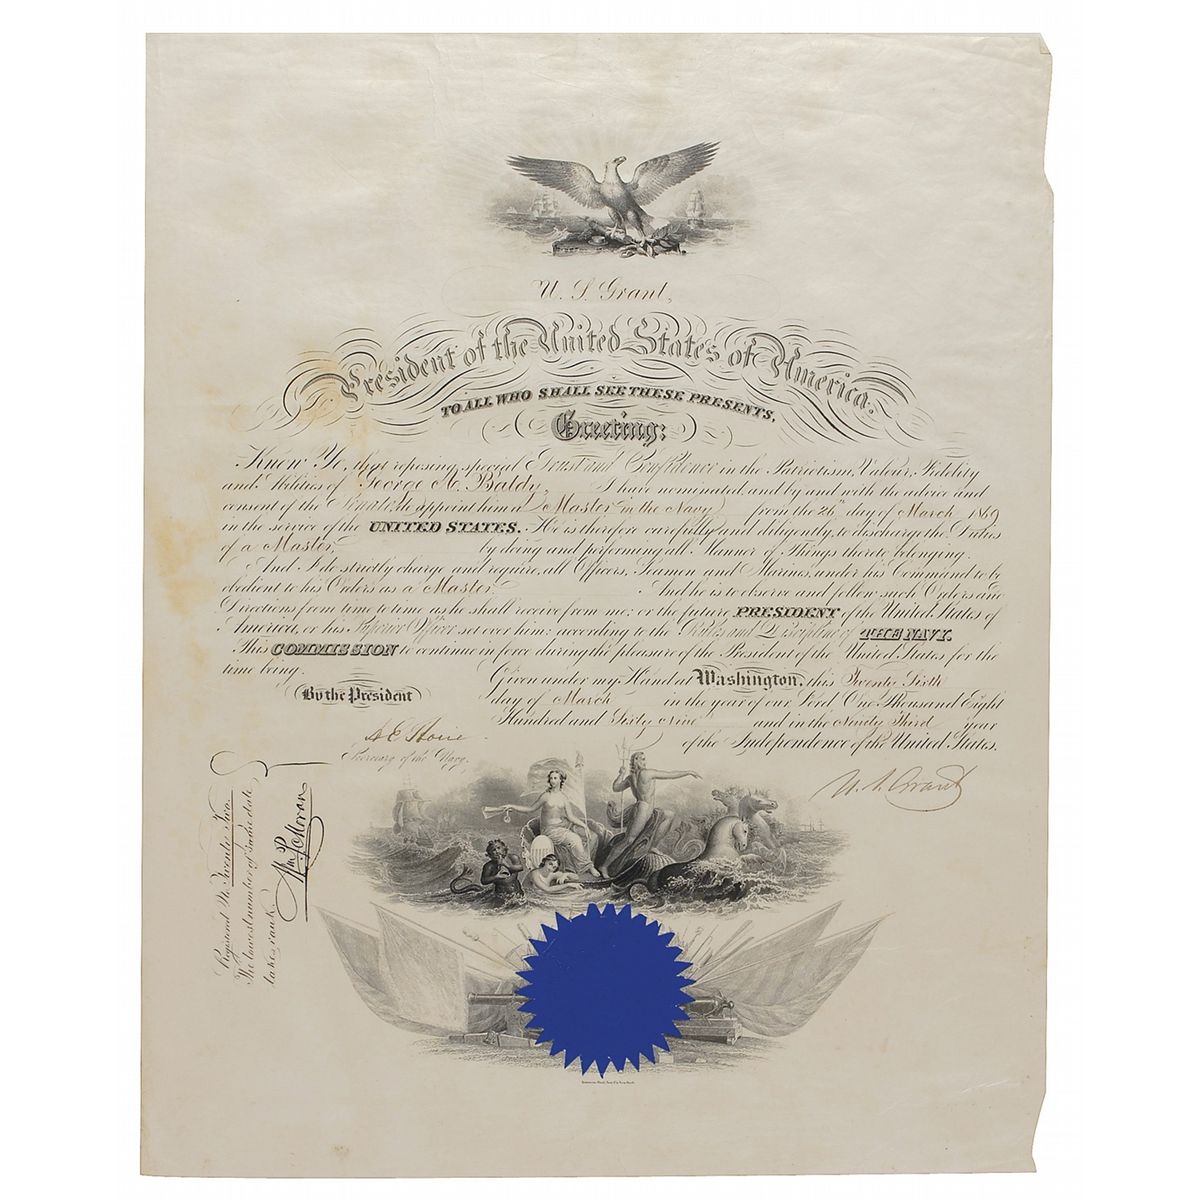 U. S. Grant,
President of the United States of America.
TO ALL WHO SHALL SEE THESE PRESENTS,
Greeting:
Know Ye, that reposing special Trust and Confidence in the Patriotism, Valour, Fidelity
and Abilities of George A. Baldy, I have nominated and by and with the advice and
consent of the Senate do appoint him a Master in the Navy from the 26 day of March 1869
in the service of the UNITED STATES. He is therefore carefully and diligently, to discharge the Duties
of a Master, by doing and performing all Manner of Things thereto belonging.
And I do strictly charge and require, all Officers, Seamen and Marines, under his Command to be
obedient to his Orders as a Master. And he is to observe and follow such Orders and
Directions from time to time as he shall receive from me; or the future PRESIDENT of the United States of
America, or his Superior Officer set over him; according to the Rules and Discipline of THE NAVY.
This COMMISSION to continue in force during the pleasure of the President of the United States for the
time being.
Given under my Hand at Washington, this Twenty Sixth
By the President
day of March in the year of our Lord One Thousand Eight
Hundred and Sixty Nine and in the Ninety Third year
of the Independence of the United States.
A E Borie
Secretary of the Navy.
U. S. Grant
Registered No. Twenty Two.
The lowest number of same date,
takes rank.
Wm P. Moran